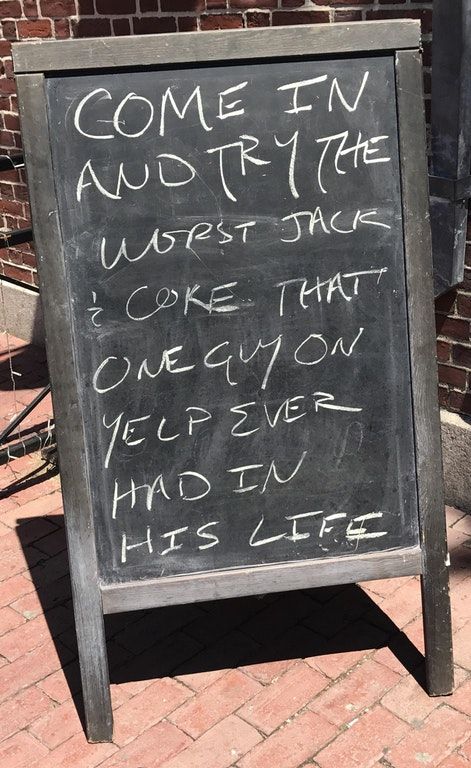 COME IN
AND TRY THE
WORST JACK
& COKE THAT
ONE GUY ON
YELP EVER
HAD IN
HIS LIFE